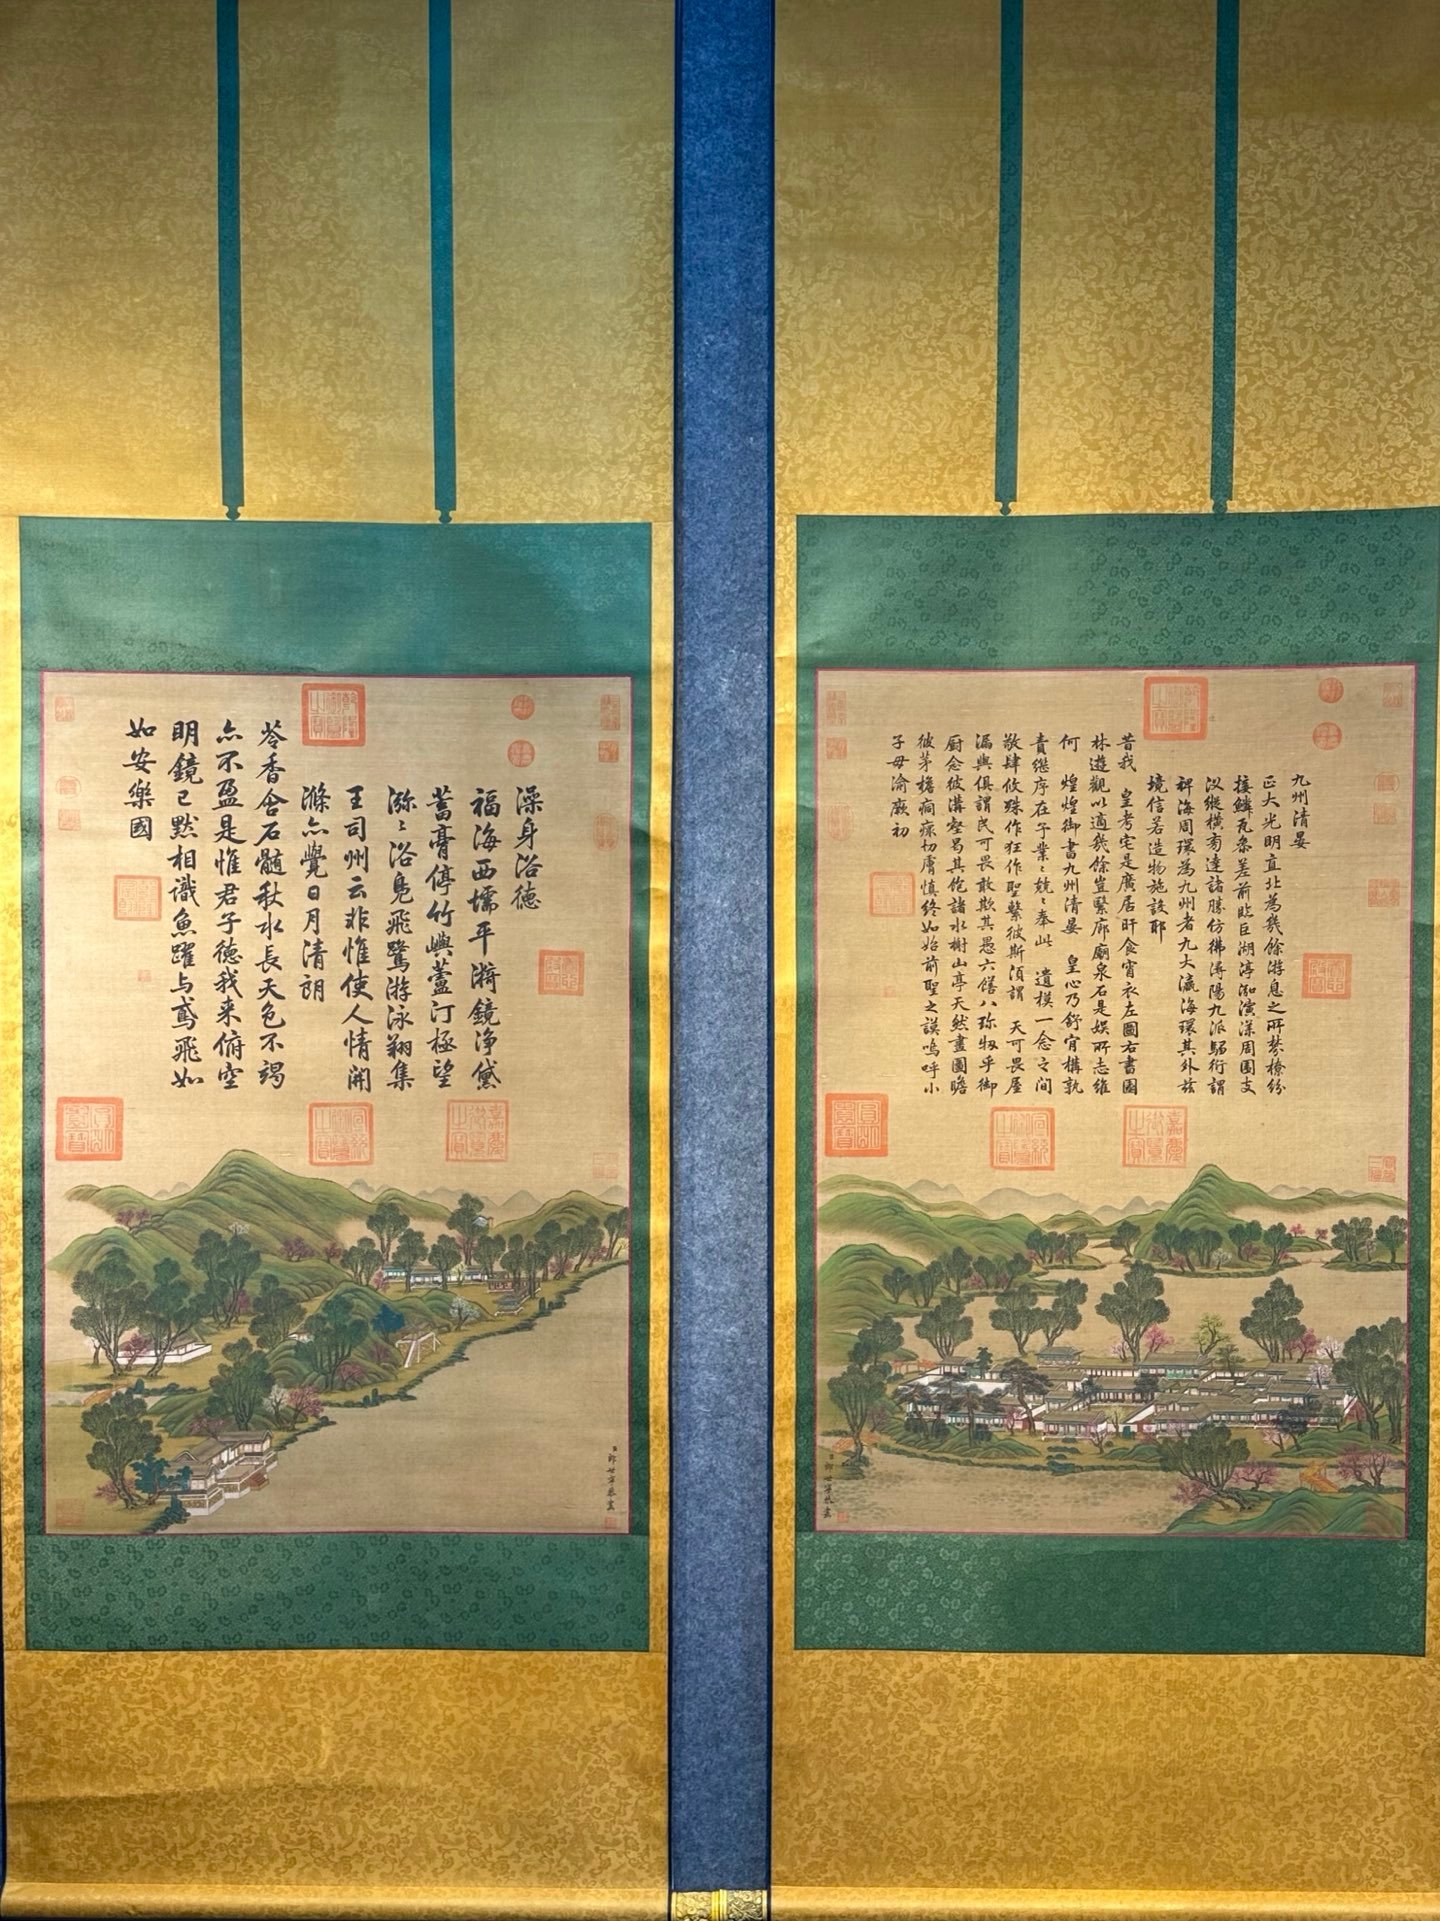 九州清晏
正大光明直北為幾餘游息之所棼橑紛
接鱗瓦參差前臨巨湖渟泓演漾周圍支
汊縱橫旁達諸勝仿彿潯陽九派騶衍謂
裨海周環為九州者九大瀛海環其外茲
境信若造物施設耶
昔我 皇考宅是廣居旰食宵衣左圖右書園
林遊觀以適幾餘豈繄廊廟泉石是娛所志維
何 煌煌御書九州清晏 皇心乃舒肯構孰
責繼序在予業〻兢〻奉此 遺模一念之間
敬肆攸殊作狂作聖繄彼斯須謂 天可畏屋
漏與俱謂民可畏敢欺其愚六膳八珍牣乎御
厨念彼溝壑曷其飽諸水榭山亭天然畫圖瞻
彼茅檐痌瘝切膚慎終如始前聖之謨嗚呼小
子毋渝厥初
乾隆御覽之寶
嘉慶御覽之寶
宣統御覽之寶
臣郎世寧恭畫
澡身浴德
福海西壖平漪鏡淨黛
蓄膏停竹嶼蘆汀極望
瀰〻浴鳧飛鷺游泳翔集
王司州云非惟使人情開
滌亦覺日月清朗
苓香含石髓秋水長天色不竭
亦不盈是惟君子德我来俯空
明鏡已默相識魚躍与鳶飛如
如安樂國
乾隆御覽之寶
嘉慶御覽之寶
宣統御覽之寶
臣郎世寧恭畫